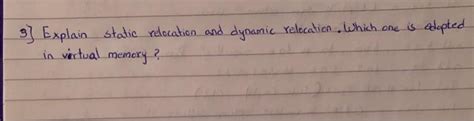 3] Explain static relocation and dynamic relocation. Which one is adapted
in virtual memory?